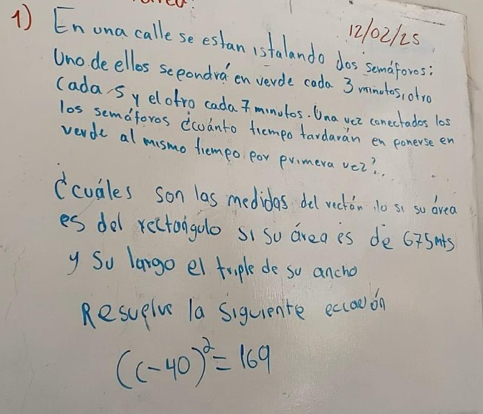 1) En una calle se estan istalando dos semáforos:
12/02/25
Uno de ellos se pondrá en verde cada 3 minutos, otro
cada 5 y el otro cada 7 minutos. Una vez conectados los
los semáforos ¿cuánto tiempo tardarán en ponerse en
verde al mismo tiempo por primera vez?..
¿cuáles son las medidas del si su área
es del rectángulo si su área es de 675mts
y su largo el triple de su ancho
Resuelve la siguiente
((-40)²=169